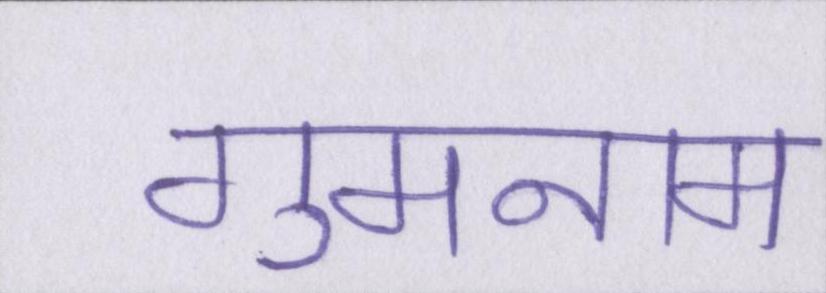 गुमनाम